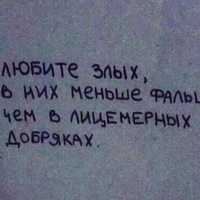 ЛЮБИТЕ ЗЛЫХ,
В НИХ МЕНЬШЕ
ЧЕМ В ЛИЦЕМЕРНЫХ
ДОБРЯКАХ.